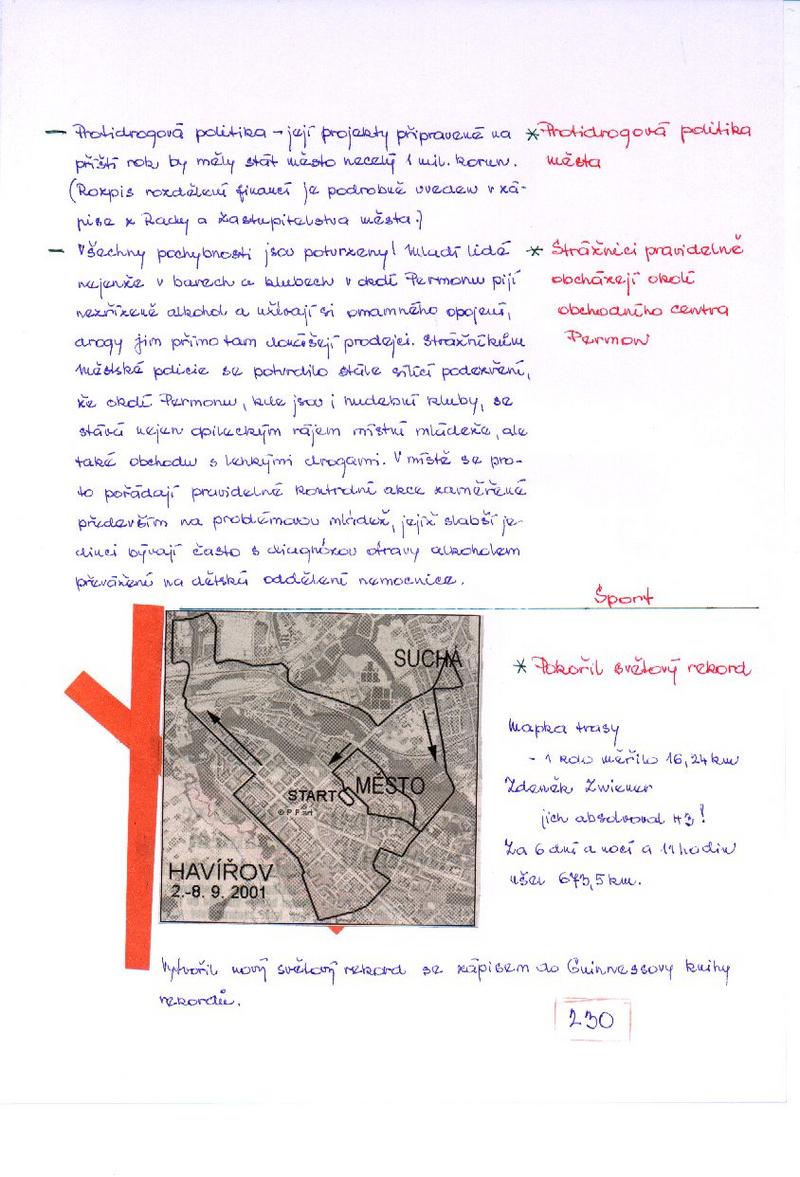 — Protidrogová politika – její projekty připravené na
příští rok by měly stát město necelý 1 mil. korun.
(Rozpis rozdělení financí je podrobně uveden v zá-
pise z Rady a Zastupitelstva města.)
* Protidrogová politika
města
— Všechny pochybnosti jsou potvrzeny! Mladí lidé
nejenže v barech a klubech v okolí Permonu pijí
nezřízeně alkohol a užívají si omamného opojení,
drogy jim přímo tam donášejí prodejci. Strážníkům
Městské policie se potvrdilo stále sílící podezření,
že okolí Permonu, kde jsou i hudební kluby, se
stává nejen opileckým rájem místní mládeže, ale
také obchodu s lehkými drogami. V místě se pro-
to pořádají pravidelné kontrolní akce zaměřené
především na problémovou mládež, jejíž slabší je-
dinci bývají často s diagnózou otravy alkoholem
převáženi na dětská oddělení nemocnice.
* Strážníci pravidelně
obcházejí okolí
obchodního centra
Permon
Šport
SUCHÁ
MĚSTO
START
HAVÍŘOV
2.-8. 9. 2001
* Pokořil světový rekord
Mapka trasy
- 1 kolo měřilo 16,24 km
Zdeněk Zwiener
jich absolvoval 43!
Za 6 dní a nocí a 11 hodin
ušel 673,5 km.
Vytvořil nový světový rekord se zápisem do Guinnessovy knihy
rekordů.
230